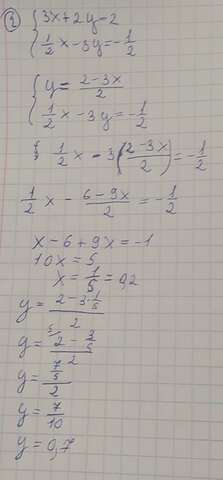 2) { 3x + 2y = 2
{ 1/2 x - 3y = -1/2
{ y = (2 - 3x)/2
{ 1/2 x - 3y = -1/2
1/2 x - 3((2 - 3x)/2) = -1/2
1/2 x - (6 - 9x)/2 = -1/2
x - 6 + 9x = -1
10x = 5
x = 1/5 = 0,2
y = (2 - 3·1/5)/2
y = (2 - 3/5)/2
y = (7/5)/2
y = 7/10
y = 0,7